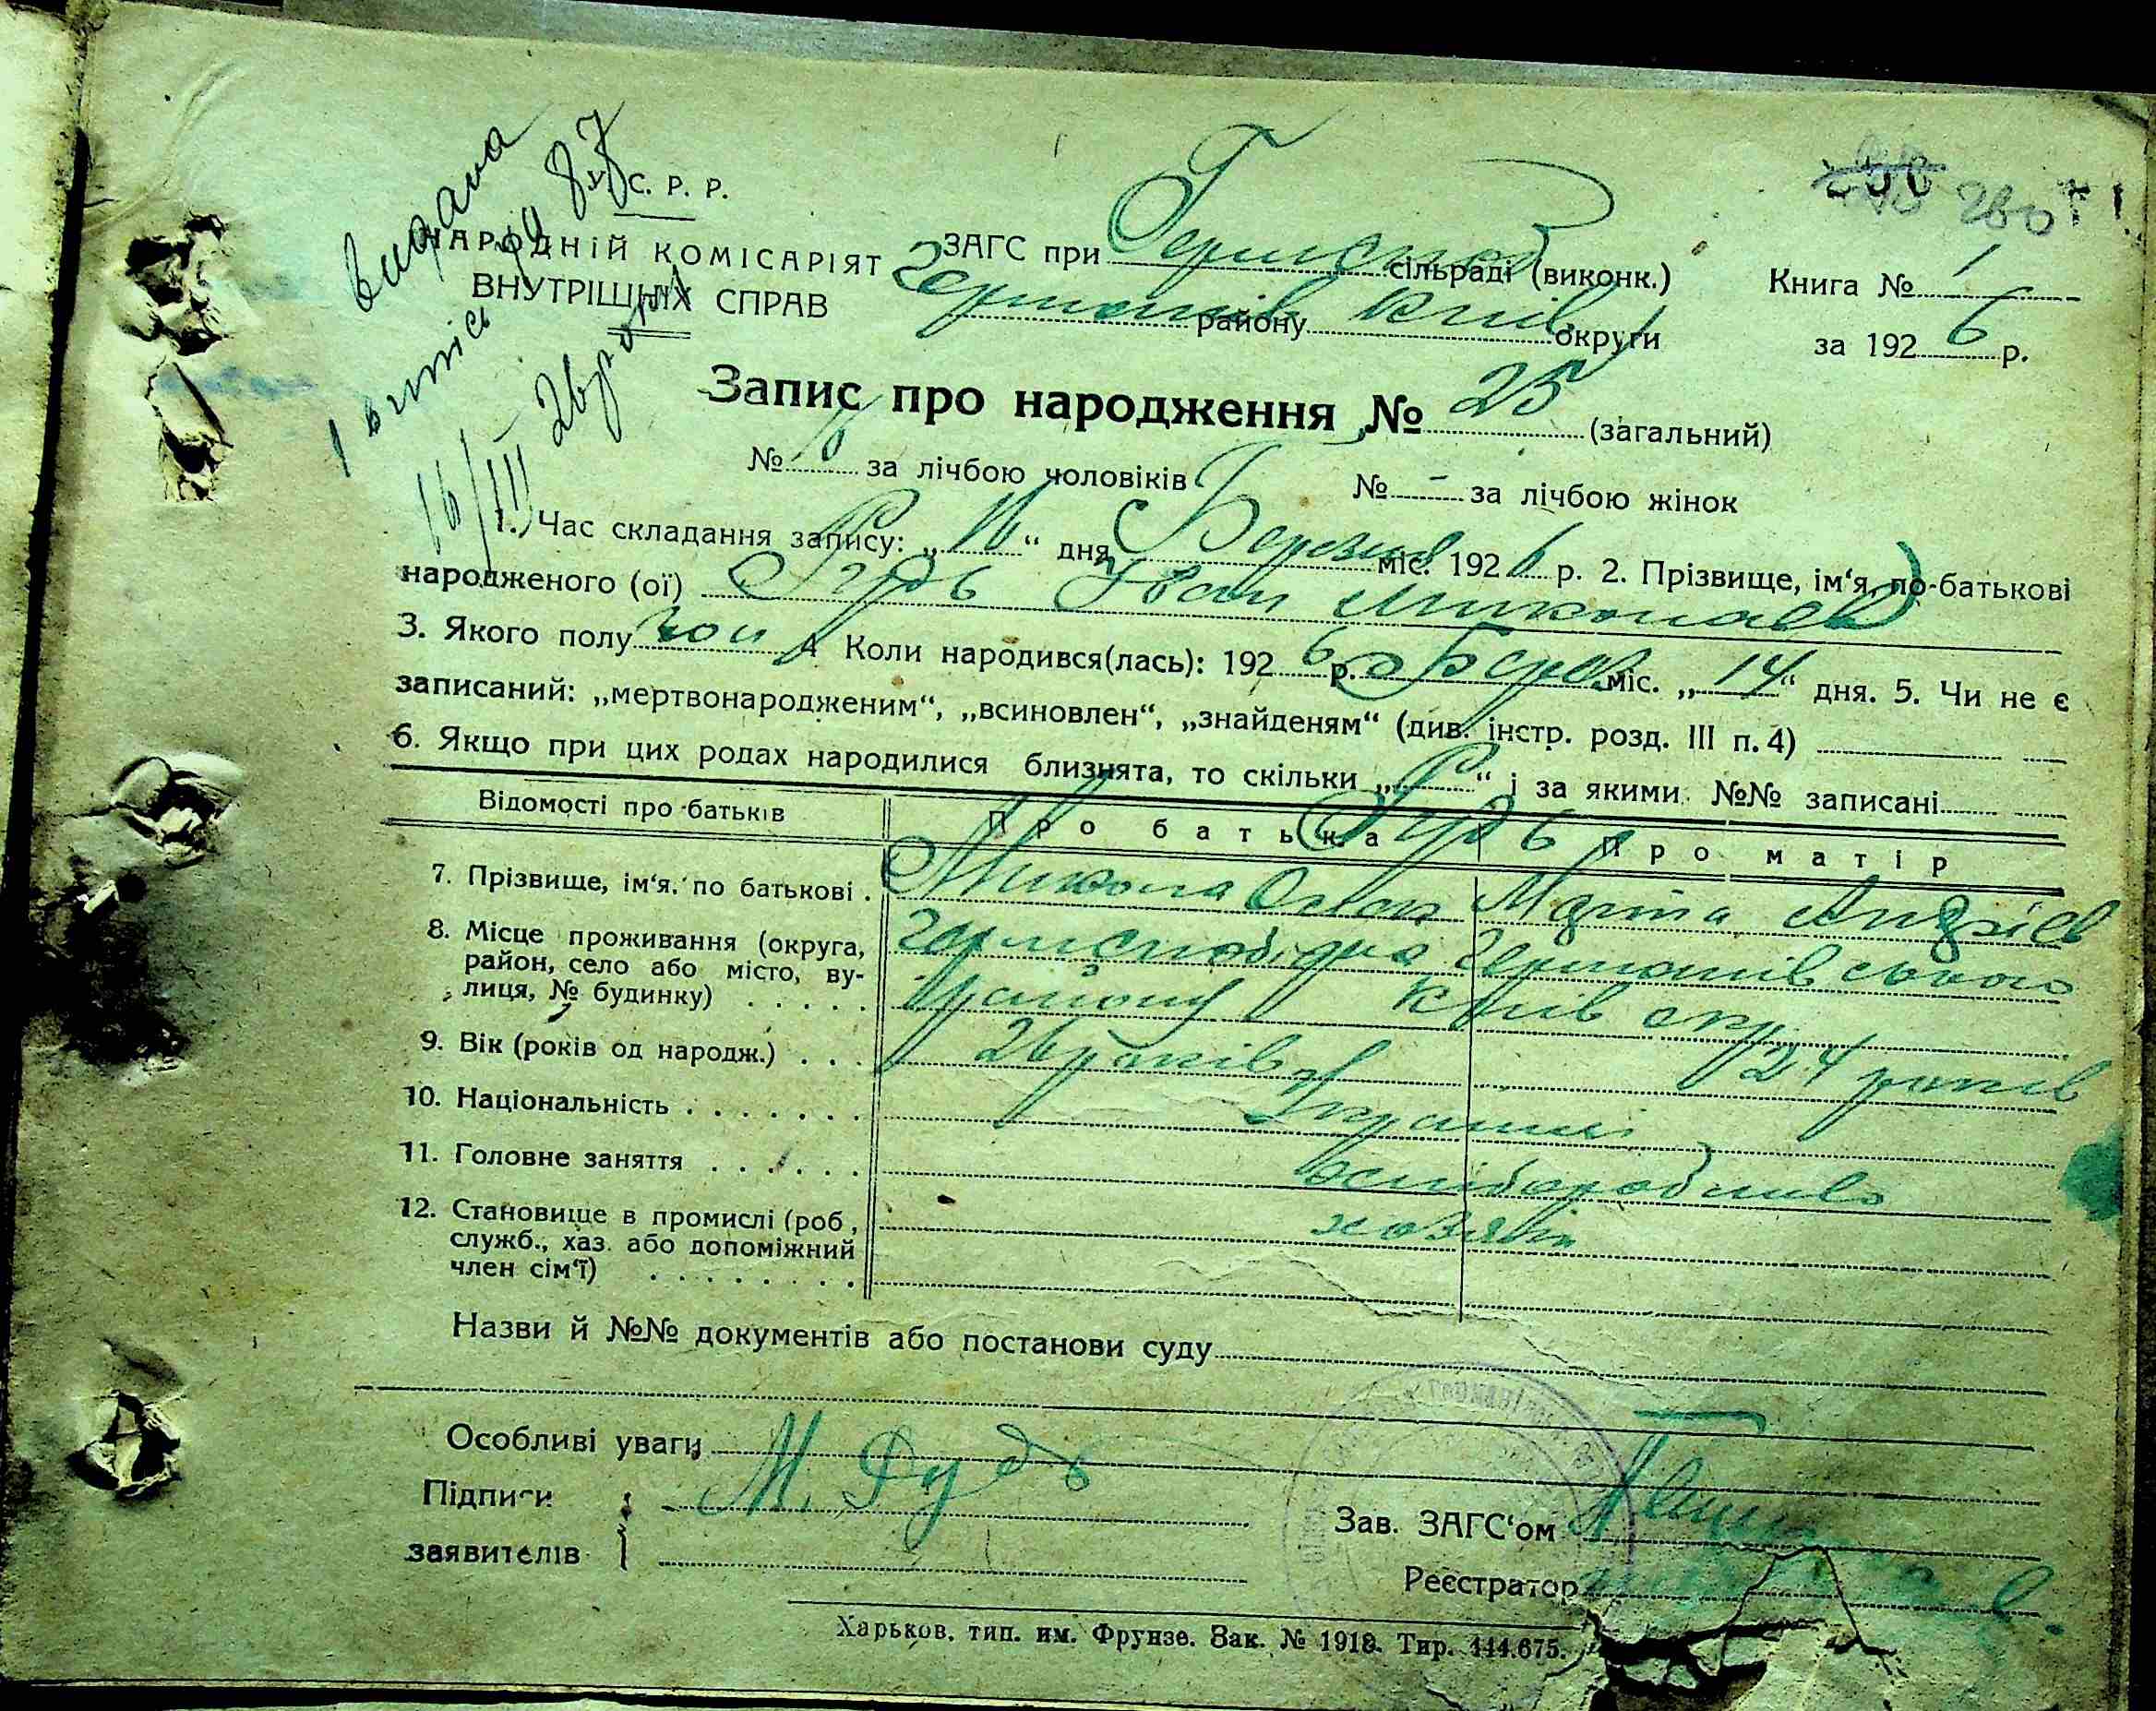 видана
1 витпіс
16/III 26 р
87
У. С. Р. Р.
НАРОДНІЙ КОМІСАРІЯТ
ВНУТРІШНІХ СПРАВ
ЗАГС при сільраді (виконк.)
району Київ округи
Книга № 1
за 1926 р.
280
Запис про народження № 25 (загальний)
№ за лічбою чоловіків № - за лічбою жінок
1. Час складання запису: „16“ дня Березня міс. 1926 р. 2. Прізвище, ім‘я, по-батькові
народженого (ої) Рудь Іван Миколаєв
3. Якого полу чол 4 Коли народився(лась): 1926 р. Берез міс. „14“ дня. 5. Чи не є
записаний: „мертвонародженим“, „всиновлен“, „знайденям“ (див. інстр. розд. III п. 4)
6. Якщо при цих родах народилися близнята, то скільки „ “ і за якими №№ записані
Відомості про батьків Про батька Про матір
Рудь
7. Прізвище, ім‘я, по батькові . Микола Марта Андрієв
8. Місце проживання (округа,
район, село або місто, ву-
лиця, № будинку) . . . . .
Германівського
району Київ окр
9. Вік (років од народж.) . . . 26 років 24 років
10. Національність . . . . . . . Українці
11. Головне заняття . . . . . . хліборобство
12. Становище в промислі (роб,
служб., хаз. або допоміжний
член сім‘ї) . . . . . . . .
хозяїн
Назви й №№ документів або постанови суду
Особливі уваги
Підписи
заявителів
М. Рудь
Зав. ЗАГС‘ом
Реєстратор
Харьков. тип. им. Фрунзе. Зак. № 1918. Тир. 444.675.